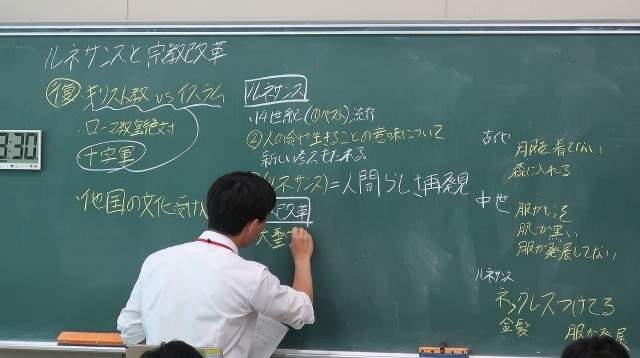 ルネサンスと宗教改革
復 キリスト教 vs イスラム
・ローマ教皇絶対
十字軍
・他国の文化
ルネサンス
・14世紀(①ペスト)流行
②人の命や生きることの意味について
新しい考えもた来る。
(ルネサンス)=人間らしさ再発見
改革
大聖
古代
月服を着てない
森に入れる
中世
服が
肌が黒い
服が発展してない
ルネサンス
ネックレスつけてる
金髪
服が発展
:30